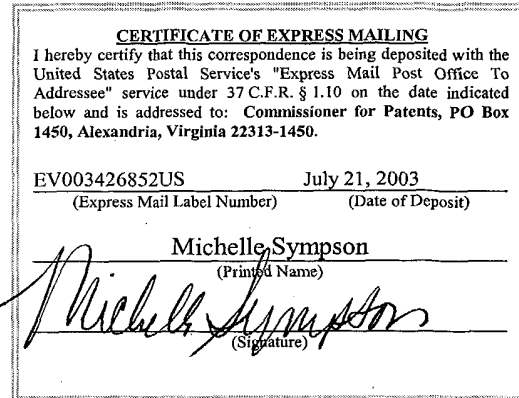 CERTIFICATE OF EXPRESS MAILING
I hereby certify that this correspondence is being deposited with the
United States Postal Service's "Express Mail Post Office To
Addressee" service under 37 C.F.R. § 1.10 on the date indicated
below and is addressed to: Commissioner for Patents, PO Box
1450, Alexandria, Virginia 22313-1450.
EV003426852US July 21, 2003
(Express Mail Label Number) (Date of Deposit)
Michelle Sympson
(Printed Name)
Michelle Sympson
(Signature)